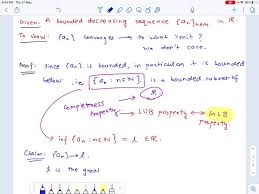 9:43 PM Thu 27 May
Given: A bounded decreasing sequence {aₙ}ₙ∈ℕ in ℝ.
To show: {aₙ} converges → to what limit?
We don't care.
Proof: Since {aₙ} is bounded, in particular it is bounded
below, i.e. {aₙ : n∈ℕ} is a bounded subset of
ℝ
Completeness Property → LUB property ↔ GLB Property.
inf {aₙ : n∈ℕ} = l ∈ ℝ.
Claim: {aₙ} → l.
l is the great